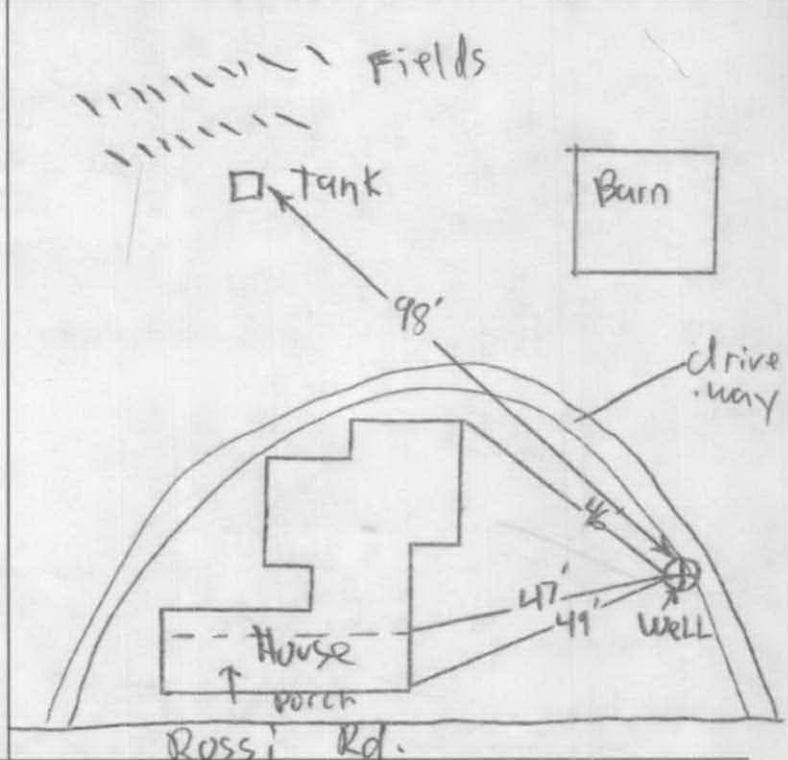 Fields
Tank
Barn
98'
drive
way
46'
47'
49'
Well
House
Porch
Rossi Rd.